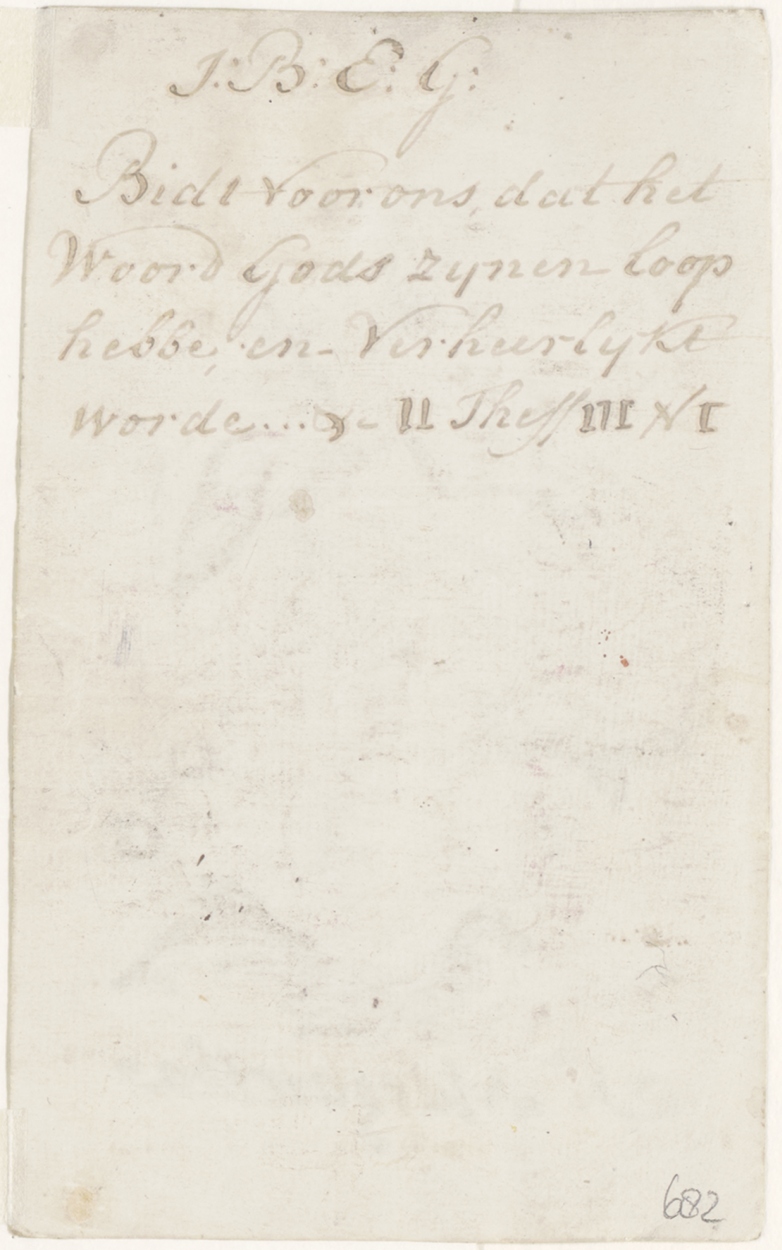 J: B: E: G:
Bidt voor ons, dat het
Woord Gods zynen loop
hebbe, en Verheerlykt
worde... II Thess III I
682